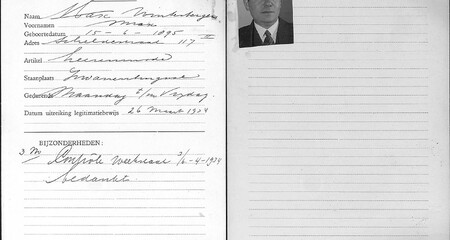 Naam Max Winterberger
Voornamen Max
Geboortedatum 15 - 6 - 1895
Adres Scheldestraat 117 II
Artikel heerenmode
Staanplaats Zwanenburgwal
Gedurende Maandag t/m Vrijdag
Datum uitreiking legitimatiebewijs 26 Maart 1934
BIJZONDERHEDEN:
Controle 3/6-4-1934
bedankt.